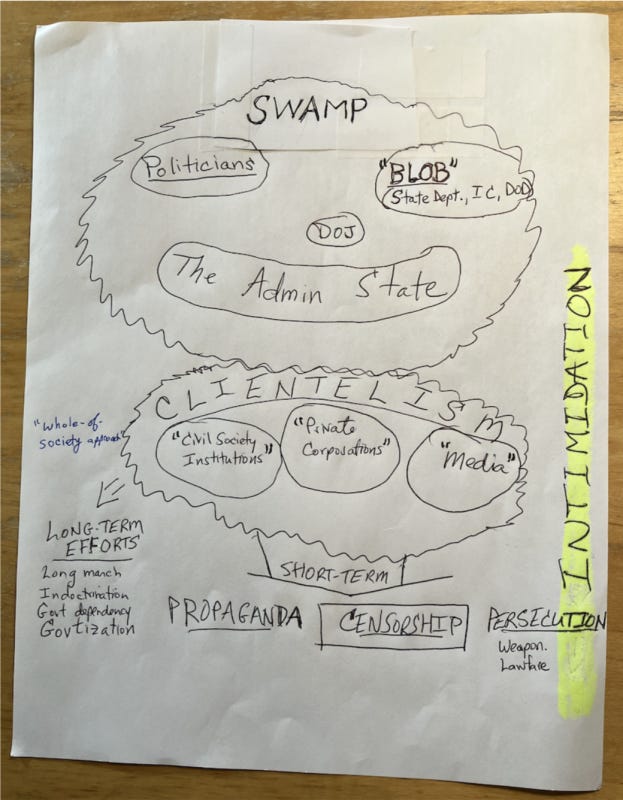 SWAMP
Politicians
"BLOB"
State Dept., IC, DoD
DOJ
The Admin State
CLIENTELISM
"whole-of-
society approach"
"Civil Society
Institutions"
"Private
Corporations"
"Media"
INTIMIDATION
LONG-TERM
EFFORTS
Long march
Indoctrination
Govt dependency
Govtization
SHORT-TERM
PROPAGANDA
CENSORSHIP
PERSECUTION
Weapon.
Lawfare